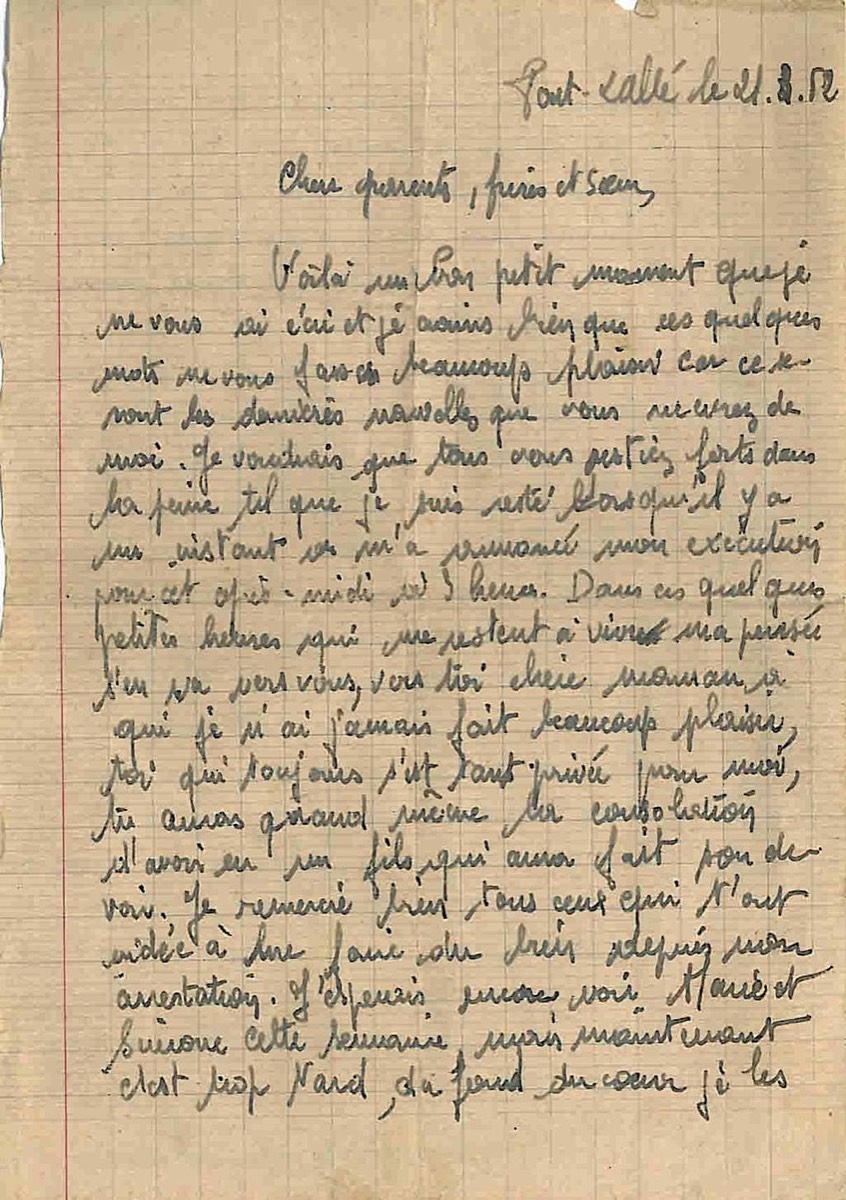 Port-Lallé le 21.2.52
Chers parents, frères et Sœur,
Voilà un bon petit moment que je
ne vous ai écri et je crains bien que ces quelques
mots ne vous fasse beaucoup plaisir car ce se-
ront les dernières nouvelles que vous recevrez de
moi. Je voudrais que tous vous restiez forts dans
la peine tel que je suis resté Lorsqu'il y a
un instant on m'a annoncé mon exécution
pour cet après-midi à 3 heures. Dans ces quelques
petites heures qui me restent à vivre ma pensée
s'en va vers vous, vers toi chère maman à
qui je n'ai jamais fait beaucoup plaisir,
toi qui toujours s'est tant privée pour moi,
tu auras quand même la consolation
d'avoir eu un fils qui aura fait son de-
voir. Je remercie bien tous ceux qui t'ont
aidée à me faire du bien depuis mon
arrestation. J'espérais encore voir Marie et
Simone cette semaine mais maintenant
c'est trop tard, du fond du cœur je les